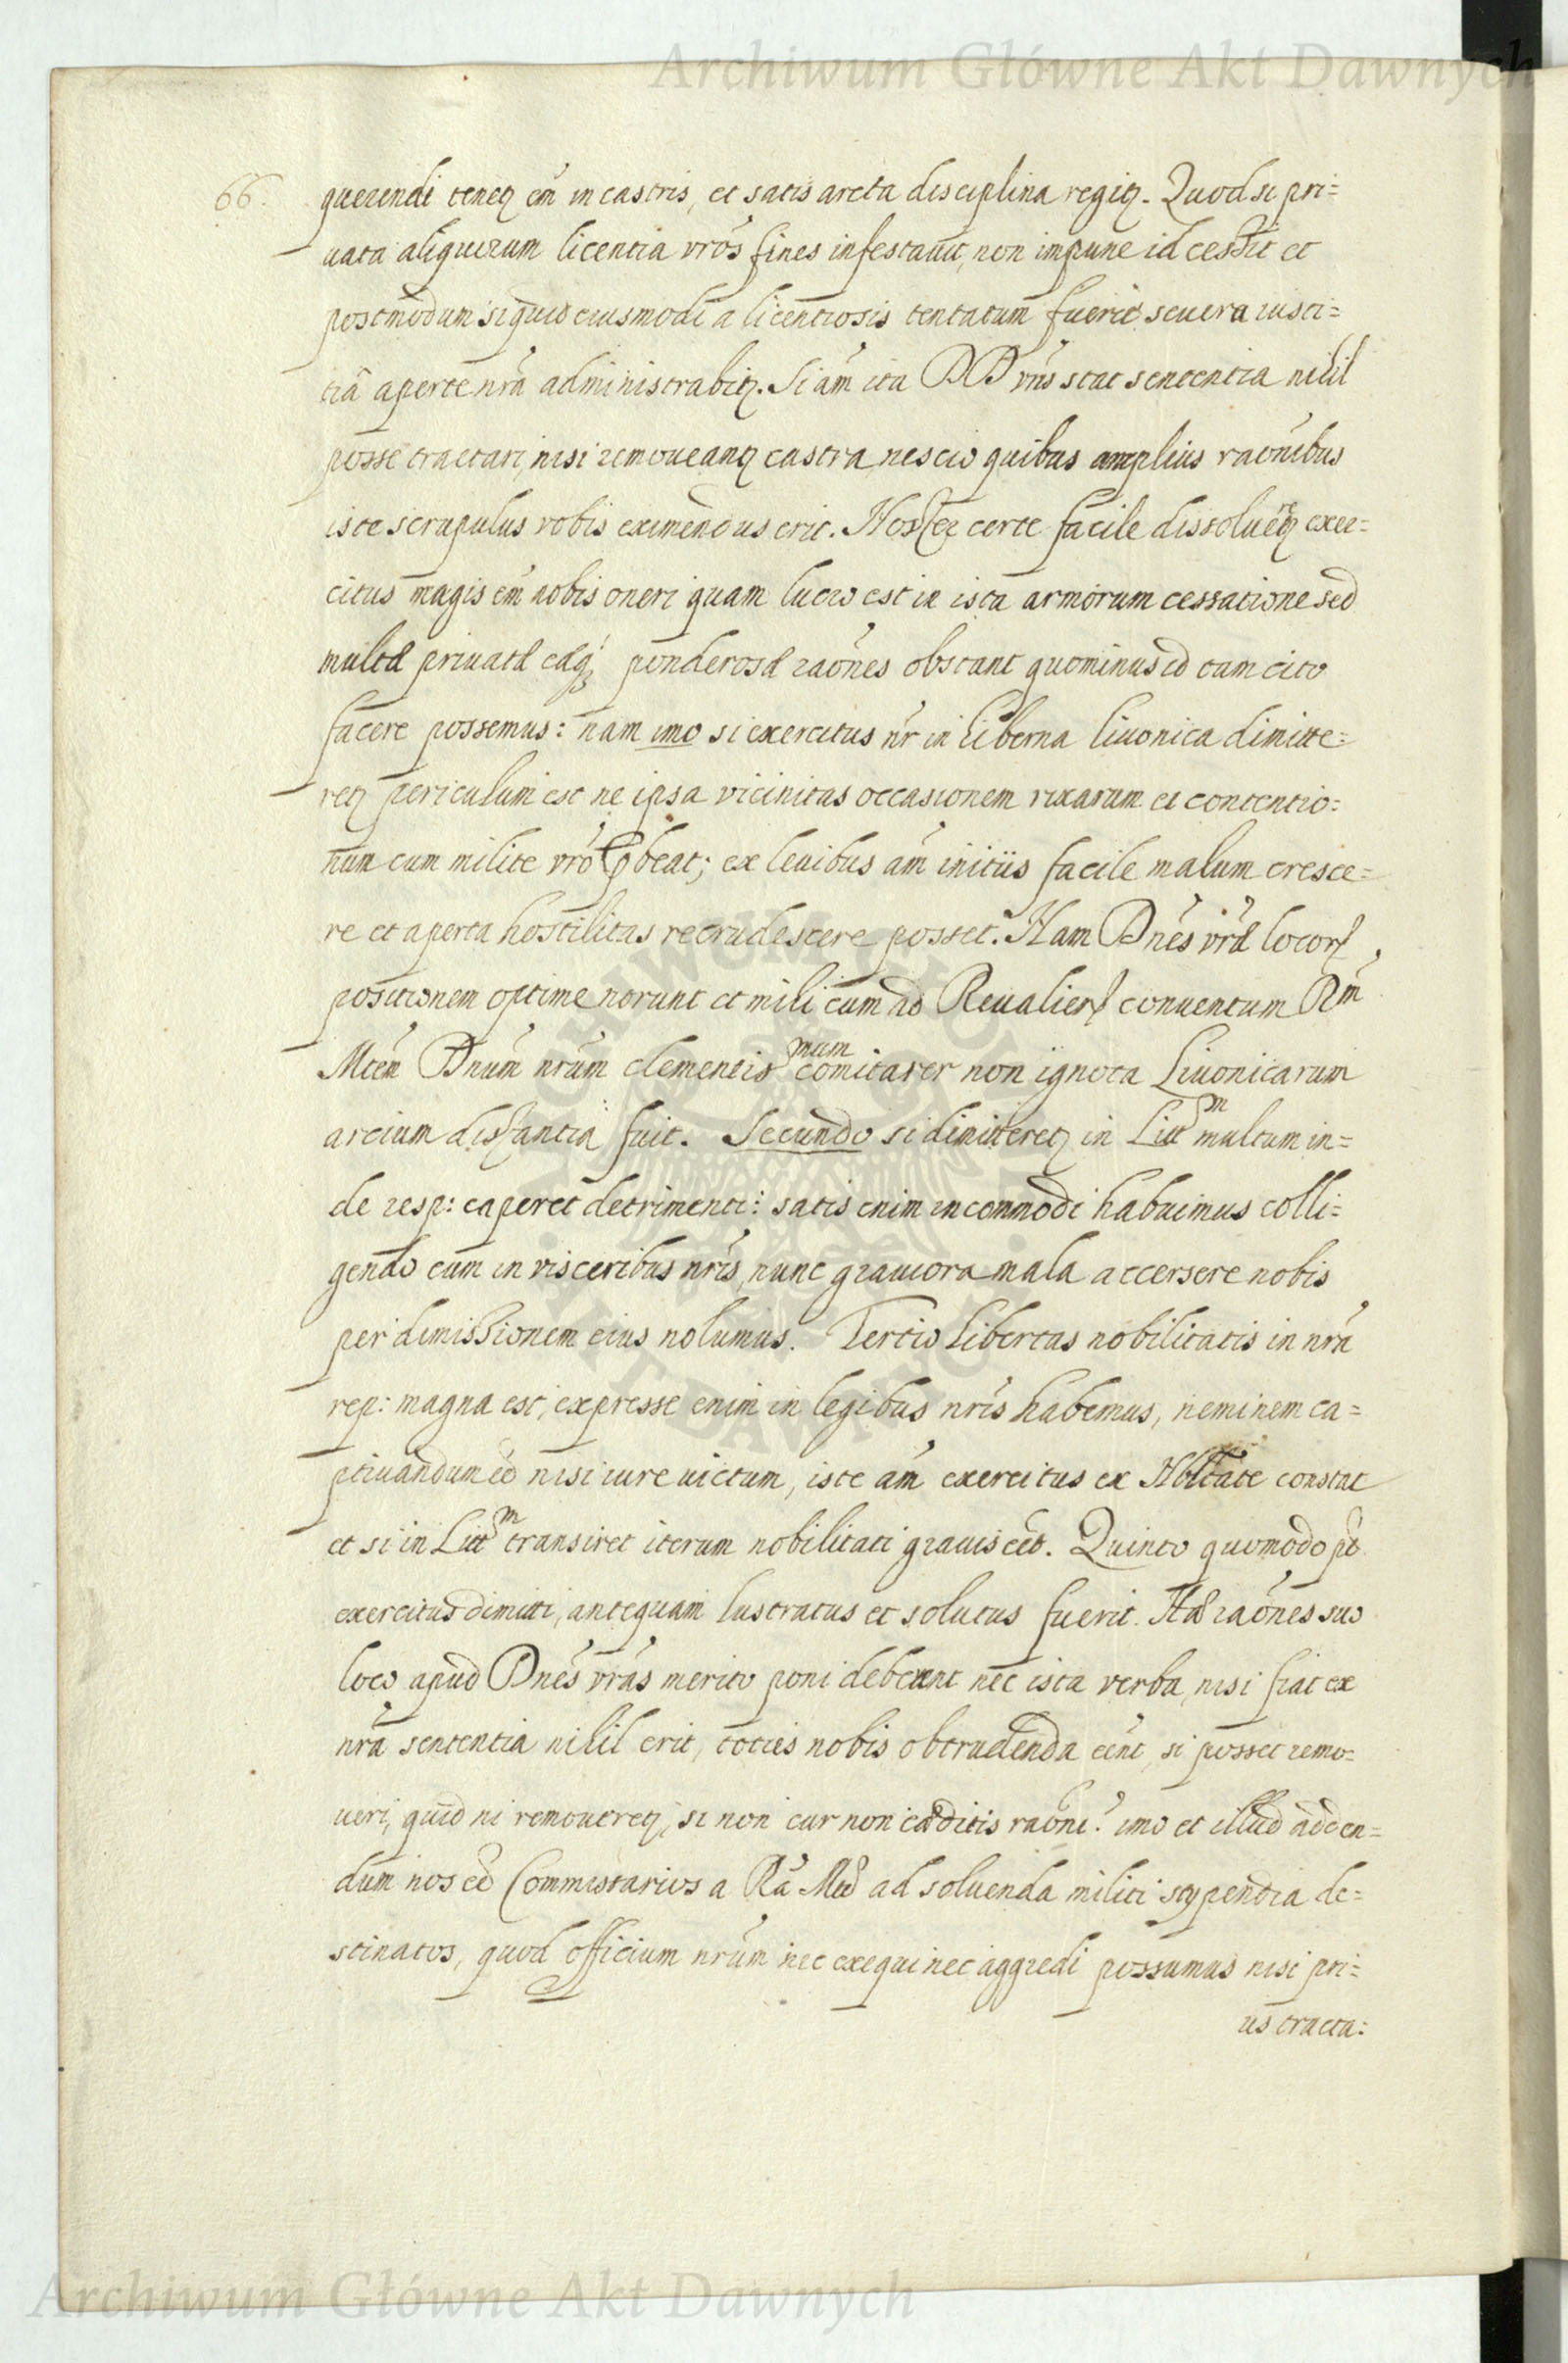 Archiwum Główne Akt Dawnych
66.
querendi teneꝫ em̃ in castris, et satis arcta disciplina regiꝫ. Quod si pri=
uata aliquorum licentia vr̃os fines infestauit, non impune id cessit et
postmodum si quid eiusmodi a licentiosis tentatum fuerit seuera iusti=
tiâ aperte nr̃a administrabiꝫ. Si am̃ ita DD vr̃is stat sententia nihil
posse tractari, nisi remoueanꝫ castra, nescio quibus amplius raõnibus
iste scrupulus vobis eximendus erit. certe facile dissolueꝫ exer=
citus magis em̃ nobis oneri quam lucro est in ista armorum cessatione sed
multæ priuatæ eæq́ꝫ ponderosæ raõnes obstant quominus id tam cito
facere possemus: nam imo si exercitus nr̃ in hiberna liuonica dimitte=
reꝫ periculum est ne ipsa vicinitas occasionem rixarum et contentio=
num cum milite vr̃o p̱beat; ex leuibus am̃ initiis facile malum cresce=
re et aperta hostilitas recrudescere posset. Nam Dnẽs vr̃æ locorꝝ
positionem optime norunt et mihi cum ad Reualierꝝ conuentum Rm̃
Mtem̃ Dnum̃ nrũm clementis mum comitarer non ignota Liuonicarum
arcium distantia fuit. Secundo si dimittereꝫ in Litt m multum in=
de resp: caperet detrimenti: satis enim incommodi habuimus colli=
gendo eum in visceribus nr̃is, nunc grauiora mala accersere nobis
per dimissionem eius nolumus. Tertio libertas nobilitatis in nr̃a
rep: magna est, expresse enim in legibus nr̃is habemus, neminem ca=
ptiuandum eẽ nisi iure uictum, iste am̃ exercitus ex Nobltate constat
et si in Litt m transiret iterum nobilitati grauis eẽt. Quinto quomodo põt
exercitus dimitti, antequam lustratus et solutus fuerit. Hæ raõnes suo
loco apud Dnẽs vr̃as merito poni debeant nec ista verba, nisi fiat ex
nr̃a sententia nihil erit, toties nobis obtrudenda eẽnt, si posset remo=
ueri, quid ni remouereꝫ, si non cur non cæditis raõni? imo et illud adden=
dum nos eẽ Commissarios a Rã Mte ad soluenda militi stypendia de=
stinatos, quod officium nrũm nec exequi nec aggredi possumus nisi pri=
us tracta:
Archiwum Główne Akt Dawnych